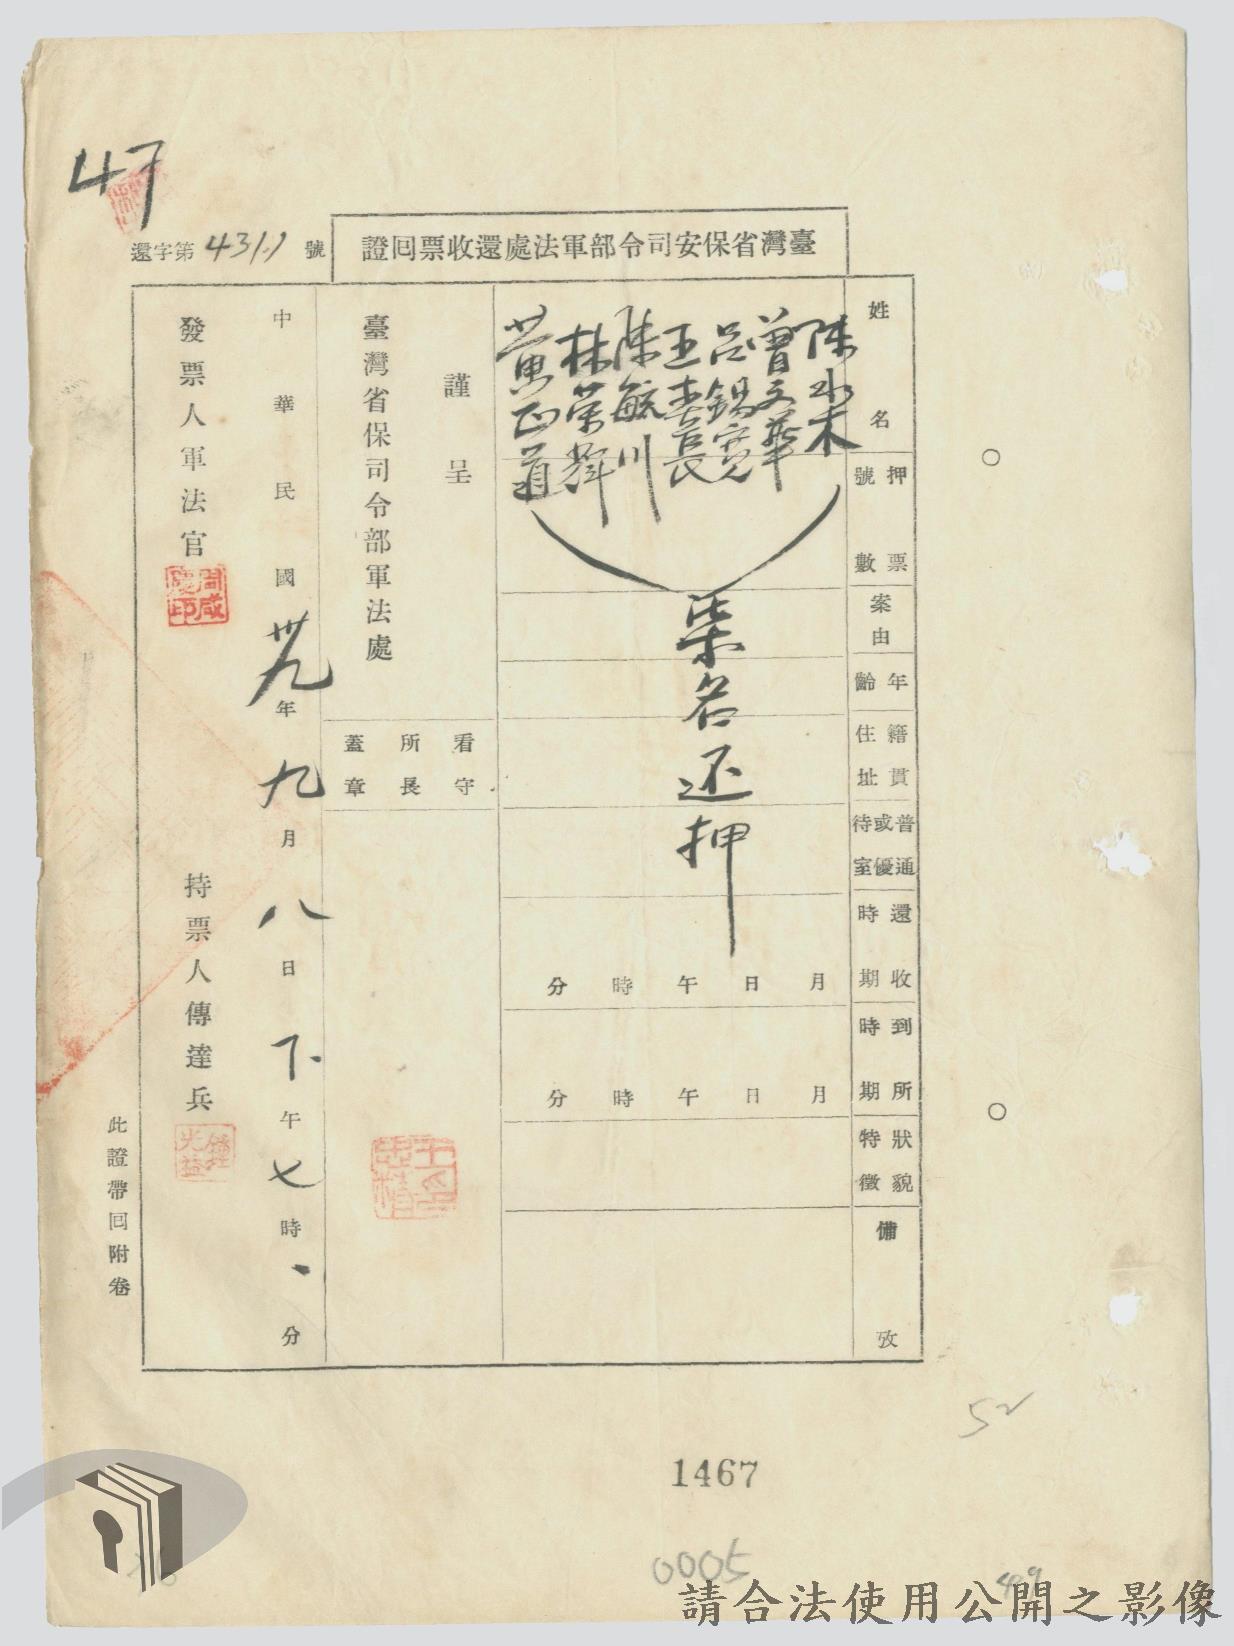 47
還字第4311號
臺灣省保安司令部軍法處還收票回證
姓名
押票號數
案由
年齡
籍貫住址
普通或優待室
還收時期
到所時期
狀貌特徵
備攷
陳水木
曾文華
呂錫寬
王春長
陳毓川
林榮輝
黃正道
柒名还押
月日午時分
月日午時分
謹呈
臺灣省保司令部軍法處
看守所長蓋章
中華民國卅九年九月八日下午七時、分
發票人軍法官
持票人傳達兵
鍾光益
此證帶回附卷
52
1467
0005
499
請合法使用公開之影像